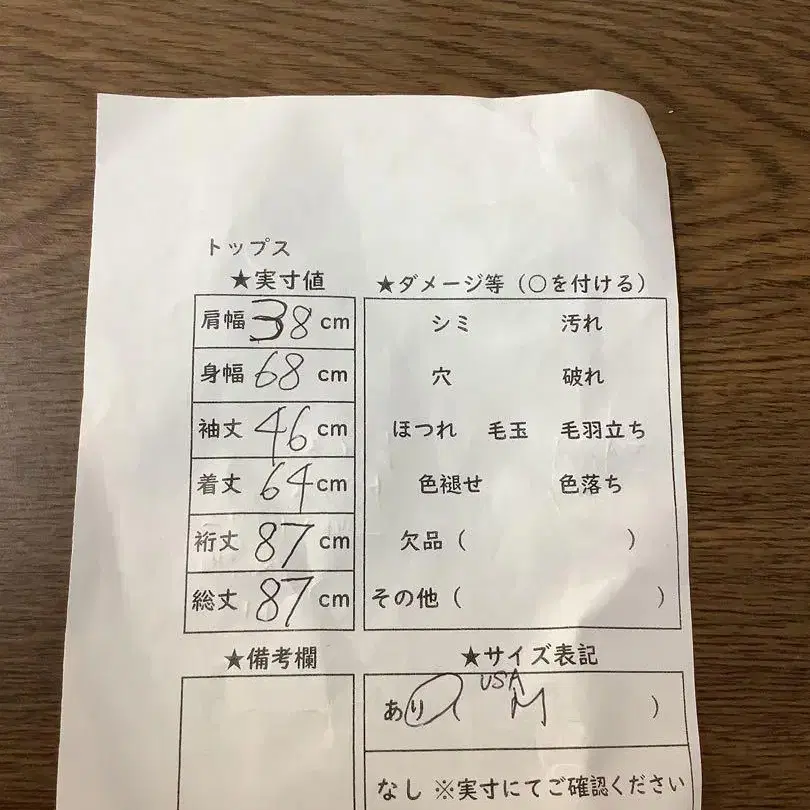 トップス
★実寸値
肩幅 38 cm
身幅 68 cm
袖丈 46 cm
着丈 64 cm
裄丈 87 cm
総丈 87 cm
★ダメージ等（○を付ける）
シミ 汚れ
穴 破れ
ほつれ 毛玉 毛羽立ち
色褪せ 色落ち
欠品（ ）
その他（ ）
★備考欄
★サイズ表記
USA
あり（ M ）
なし ※実寸にてご確認ください